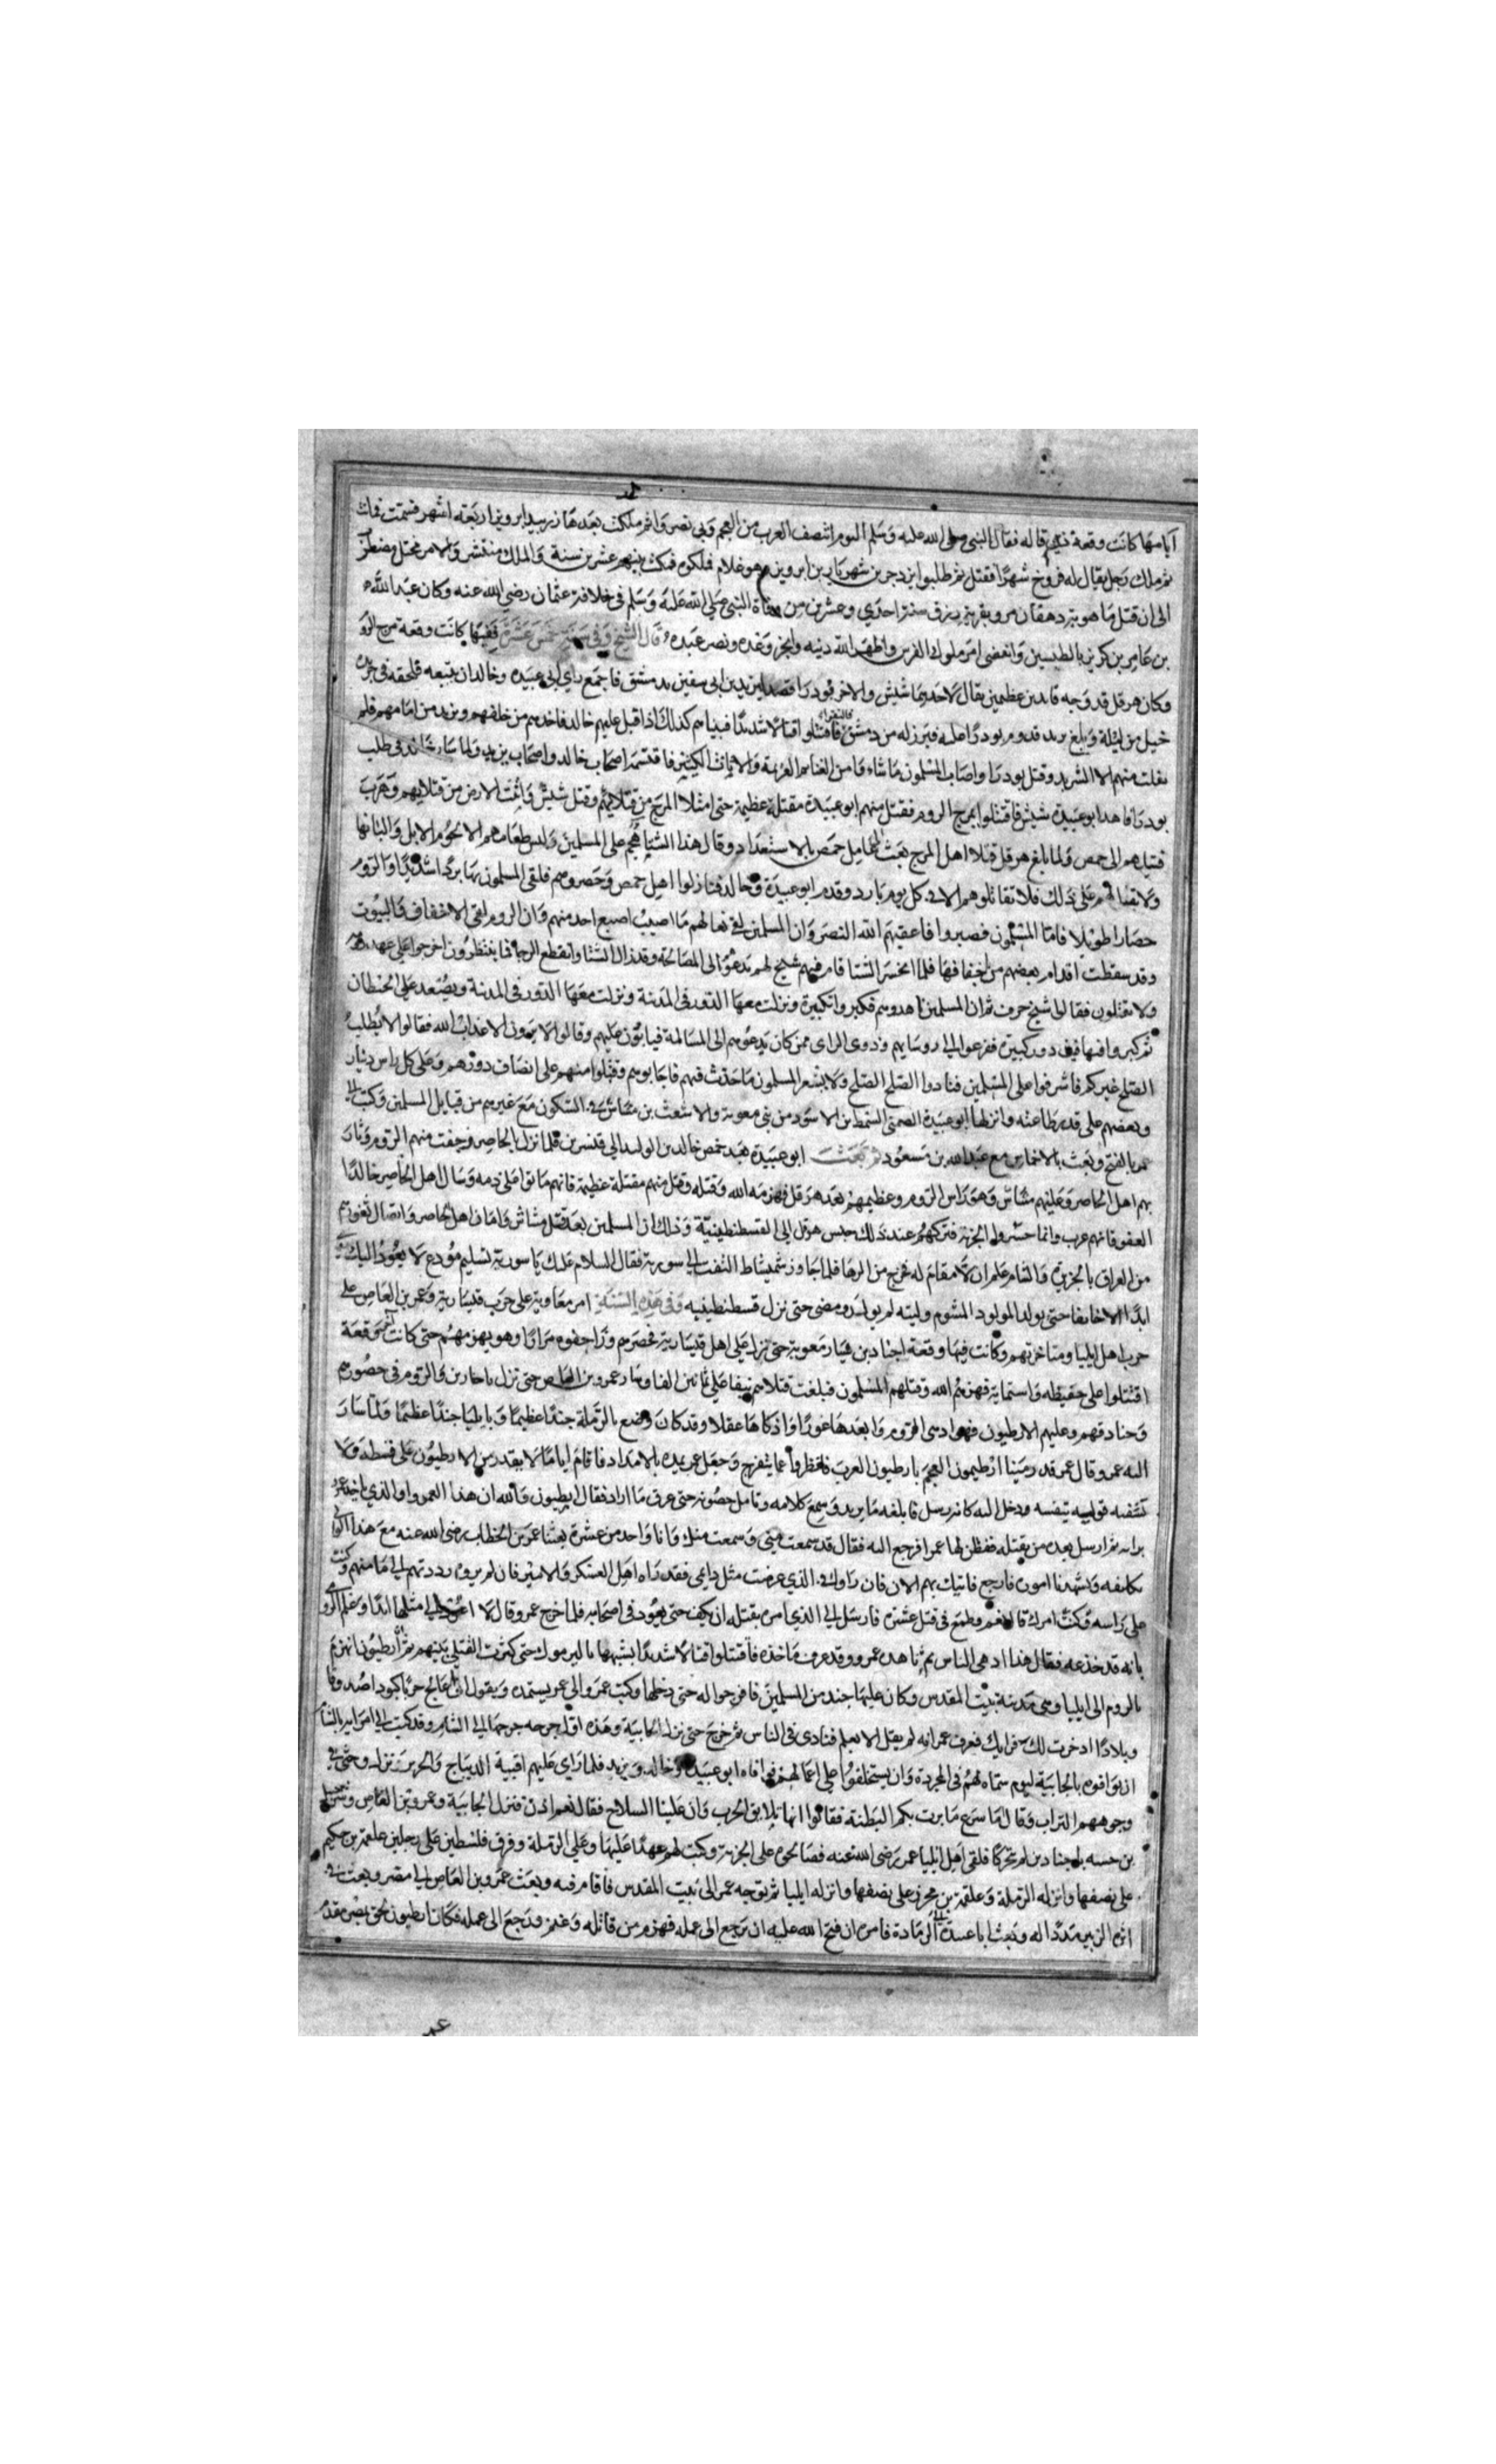 ايامها كانت وقعة ذي قاله فقال النبي صلى الله عليه وسلم اليوم انتصف العرب من العجم وبي نصروا ثم ملكت بعدها زربيد ابرويز اربعة اشهر فسمت فمات
ثم ملك رجل يقال له فروخ شهرًا فقتل ثم طلبوا يزدجر بن شهريار بن ابرويز وهو غلام فملكوه فمكث بينهم عشرين سنة والملك منتشر والامر مختل مضطرب
الى ان قتل ماهويه دهقان مرو بقرية رزق سنة احدي وعشرين من وفاة النبي صلي الله عليه وسلم في خلافة عثمان رضي الله عنه وكان عبد الله
بن عامر بن كريز بالطبسين وانقضى امر ملوك الفرس واظهر الله دينه وانجز وعده ونصر عبده قال الشيخ وفي سنة خمس عشرة ففيها كانت وقعة مرج الرو
وكان هرقل قد وجه قايدين عظيمين يقال لاحدهما شنش والاخر بودرا فقصد ليزيد بن ابي سفين بدمشق فاجمع راي ابي عبيده وخالد ان يتبعه فلحقه في جريدة
خيل من ليلة وبلغ يزيد قدوم بودرا عليه فبرز له من دمشق فاقتتلوا قتالا شديدًا فبيناهم كذلك اذ اقبل عليهم خالد فاخدهم من خلفهم ويزيد من امامهم فلم
يفلت منهم الا الشريد وقتل بودرا واصاب المسلمون ما شاء وا من الغنايم العزيمة والاثاث الكثير فاقتسمه اصحاب خالد واصحاب يزيد ولما سار خالد في طلب
بودرا ناهد ابو عبيدة شنش فاقتتلوا بمرج الروم فقتل منهم ابو عبيدة مقتلة عظيمة حتى امتلا المرج من قتلاهم وقتل شنش وانتنت الارض من قتلاهم وهرب
فتيلهم الى حمص ولما بلغ هرقل قتلا اهل المرج بعث الى عامل حمص بالاستعداد وقال هذا الشتاء هجم على المسلمين وليس طعامهم الا لحوم الابل والبانها
ولا بقا لهم على ذلك فلا تقاتلوهم الا في كل يوم بارد وقدم ابو عبيدة وخالد فنازلوا اهل حمص وحصروهم فلقى المسلمون بها بردًا شديدًا والروم
حصارا طويلا فاما المسلمون فصبروا فاعقبهم الله النصر وان المسلمين لفي نعالهم ما اصيب اصبع احد منهم وان الروم لفى الاخفاف والبيوت
وقد سقطت اقدام بعضهم من اخفافها فلما انحسر الشتا قام فيهم شيخ لهم يدعو الى المصالحة وقد زال الشتا وانقطع الرجا فما ينتظرون اخرجوا على عهد
ولا تقتلون فقالوا شيخ خرف ثم ان المسلمين ناهدوهم فكبروا تكبيرة ونزلت معها الدور في المدينة ونزلت معها الدور في المدينة وتصدعت الحيطان
ثم كبروا فتهافت دور كبيرة ففزعوا الى روسايهم وذوى الراى ممن كان يدعوهم الى المسالمة فيابون عليهم وقالوا لا ترون الا عذاب الله فقالوا لا يطلب
الصلح غيركم فاشرفوا على المسلمين فنادوا الصلح الصلح ولا يشعر المسلمون ما حدث فيهم فاجابوهم وقبلوا منهم على انصاف دورهم وعلى كل راس دينار
وبعضهم على قدر طاعته وانزلها ابو عبيدة الصمتي السمط بن الاسود من بني معوية والاشعث بن ميناس في السكون مع غيرهم من قبايل المسلمين وكتب الى
عمر بالفتح وبعث بالاخماس مع عبد الله بن مسعود ثم بعث ابو عبيدة بعد حمص خالد بن الوليد الي قنسرين فلما نزل بالحاضر زحفت منهم الروم وثار
بهم اهل الحاضر وعليهم مشاس وهو راس الروم وعظيمهم بعد هرقل فهزمه الله وقتله وقتل منهم مقتلة عظيمة فانهم ماتوا على دمه وسال اهل الحاضر خالدًا
العفو فانهم عرب وانما حشروا الحرب فتركهم عند ذلك حبس هرقل الى القسطنطينية وذلك ان المسلمين بعد قتل مشاش وامان اهل الحاضر واتصال ثغورهم
من العراق بالجزيرة والشام علم ان لا مقام له فخرج من الرها فلما جاوز شميشاط التفت الي سورية فقال السلام عليك يا سورية تسليم مودع لا يعود اليك رومي
ابدًا الا خايفا حتى يولد المولود المشوم وليته لم يولد ومضى حتى نزل قسطنطينيه وفي هذه السنة امر معاوية على حرب قيسارية وعمر بن العاص على
حرب اهل ايليا ومناخرتهم وكانت فيها وقعة اجنادين فسار معوية حتى نزل على اهل قيسارية فحصرهم وزاحفوه مرارًا وهو يهزمهم حتى كانت اخر وقعة
اقتتلوا على حفيظه واستماتة فهزمهم الله وقتلهم المسلمون فبلغت قتلاهم نيفا على ثمانين الفا وسار عمرو بن العاص حتى نزل باجنادين والروم في حصونهم
وخنادقهم وعليهم الارطيون فهو ادهى الروم وابعدها غورًا واذكاها عقلا وقد كان وضع بالرملة جندًا عظيمًا وبايليا جندًا عظيمًا ولما سار
اليه عمرو قال عمر قد رمينا ارطيون العجم بارطيون العرب فانظروا عما ينفرج وجعل عمر يمده بالامداد فاقام ايامًا لا يقدر من الارطيون على قسطة ولا
تشفيه فوليه بنفسه ودخل اليه كانه رسل فابلغه ما يريد وسمع كلامه وتامل حصونه حتى عرف ما اراد فقال ارطيون والله ان هذا العمرو او الذي ياخذ عمرو
برايه ثم ارسل بعده من يقتله ففطن لها عمرا فرجع اليه فقال قد سمعت مني وسمعت منك وانا واحد من عشرة بعثنا عمر بن الخطاب رضي الله عنه مع هذا الوالي
نكانفه ويشهدنا اموره فارجع فاتيك بهم الان فان راو في الذي عرضت مثل رايي فقد راه اهل العسكر والامير فان لم يروه رددتهم الى مامنهم وكنت
على راسه وكنت امرك قال نعم وطمع في قتل عشرة فارسل الي الذي امره بقتله ان يكف حتى يعود في اصحابه فلما خرج عمرو قال لا اعود الى مثلها ابدًا وعلم الرو
بانه قد خدعه فقال هذا ادهى الناس ثم ناهده عمرو وقد عرف ماخذه فاقتتلوا قتالا شديدًا يشبهها باليرموك حتى كثرت القتلى بينهم ثم ان ارطيون انهزم
بالروم الى ايليا وهي مدينة بيت المقدس وكان عليها جند من المسلمين فافرجوا له حتى دخلها وكتب عمرو الى عمر يستمده ويقول اني اعالج حربًا كؤدا صدوفا
وبلادًا ادخرت لك فرايك فعرف عمر انه لم يقل الا بعلم فنادى في الناس ثم خرج حتى نزل الجابية وهذه اول خرجه خرجها الي الشام وقد كتب الى امرايه بالشام
ان يوافوه بالجابية ليوم سماه لهم في المجردة وان يستخلفوا على اعمالهم فوافاه ابو عبيدة وخالد ويزيد فلما راي عليهم اقبية الديباج والحرير نزل وحثى في
وجوههم التراب وقال ما سرع ما برت بكم البطنة فقالوا انها تلايق الحرب وان علينا السلاح فقال نعم اذن فنزل الجابية وعمرو بن العاص وشرحبيل
بن حسنه باجنادين لم تحركا فلقى اهل ايليا عمر رضى الله عنه فصالحوه على الجزية وكتب لهم عهدًا عليها وعلي الرملة وفرق فلسطين على رجلين علقمة بن حكيم
على نصفها وانزله الرملة وعلقمة بن محرز على نصفها وانزله ايليا ثم توجه عمر الى بيت المقدس فاقام فيه وبعث عمرو بن العاص الى مصر وبعث في
اثره الزبير مددًا له وبعث ابا عبيدة الى الرمادة فامره ان فتح الله عليه ان يرجع الى عمله فهزم من قاتله وغنم ورجع الى عمله فكان ارطيون لحق بمصر مقدم